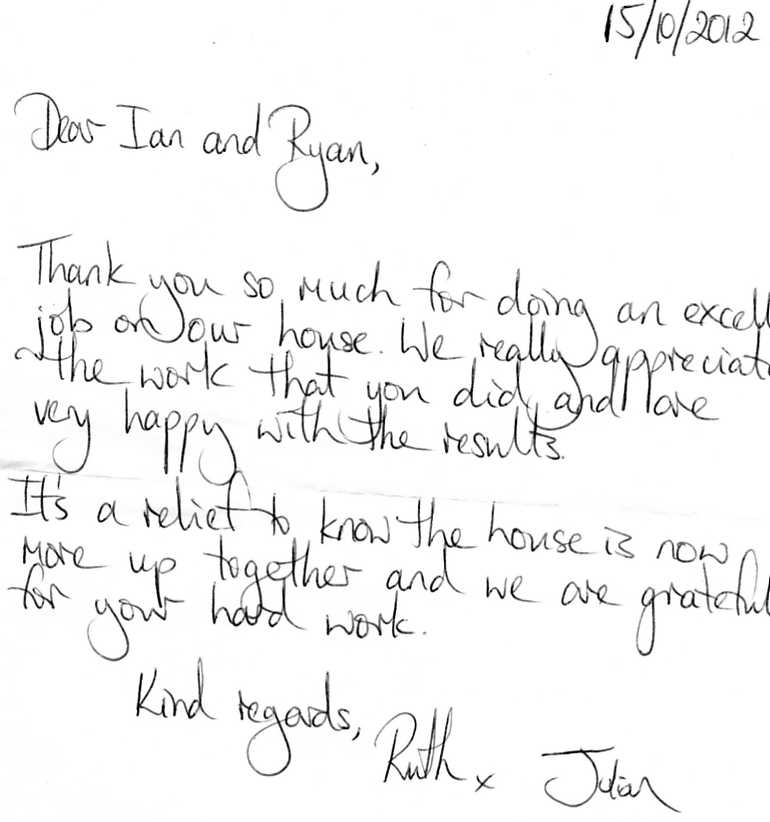 15/10/2012
Dear Ian and Ryan,
Thank you so much for doing an excell
job on our house. We really appreciat
the work that you did and are
very happy with the results.
It's a relief to know the house is now
more up together and we are grateful
for your hard work.
Kind regards,
Ruth x Julian